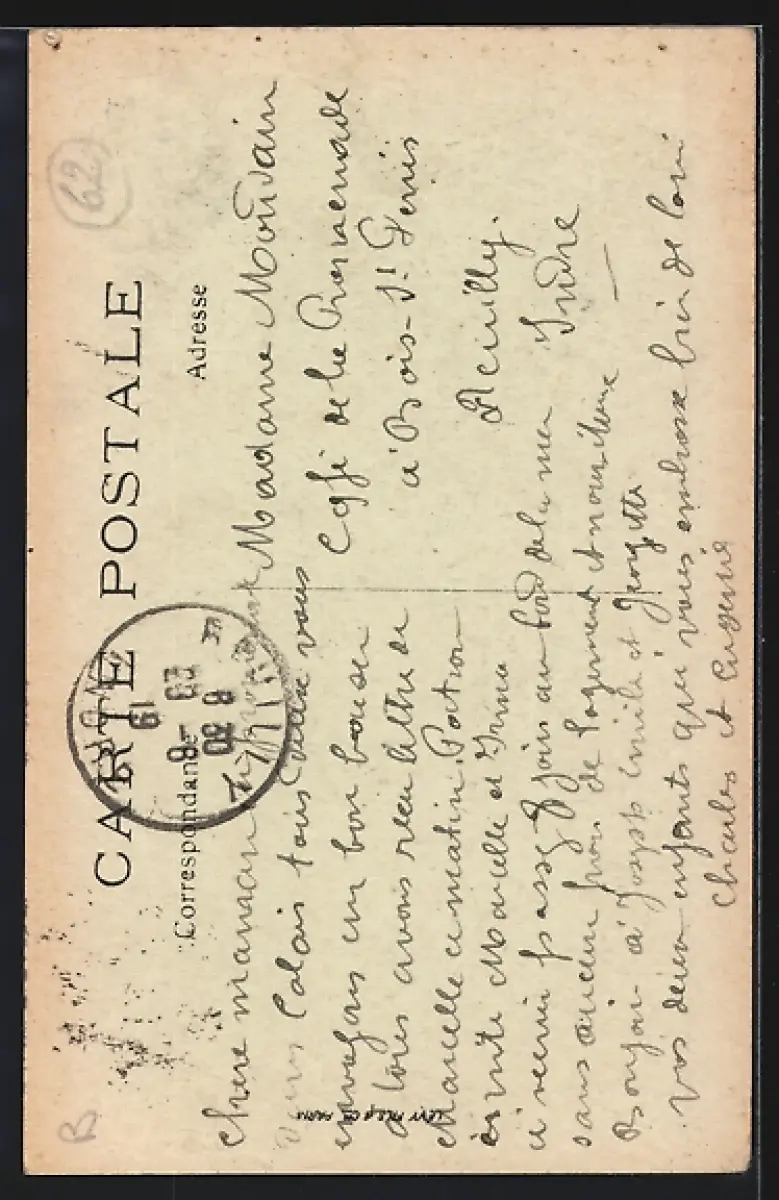 62
CARTE POSTALE
Correspondance
Adresse
Chere maman
dans Calais tous deux vous
envoyons un bon baiser
alors avons recu lettre de
Marcelle ce matin.
invite Marcelle et Irma
a venir passe 8 jours au bord de la mer
sans aucun frais de logement et nourriture
Bonjour a Joseph Emile et Georgette
vos deux enfants qui vous embrasse bien de loin
Charles et Eugenie
Madame Mondain
Café de la Promenade
a Bois-St Denis
Reuilly.
Indre
B